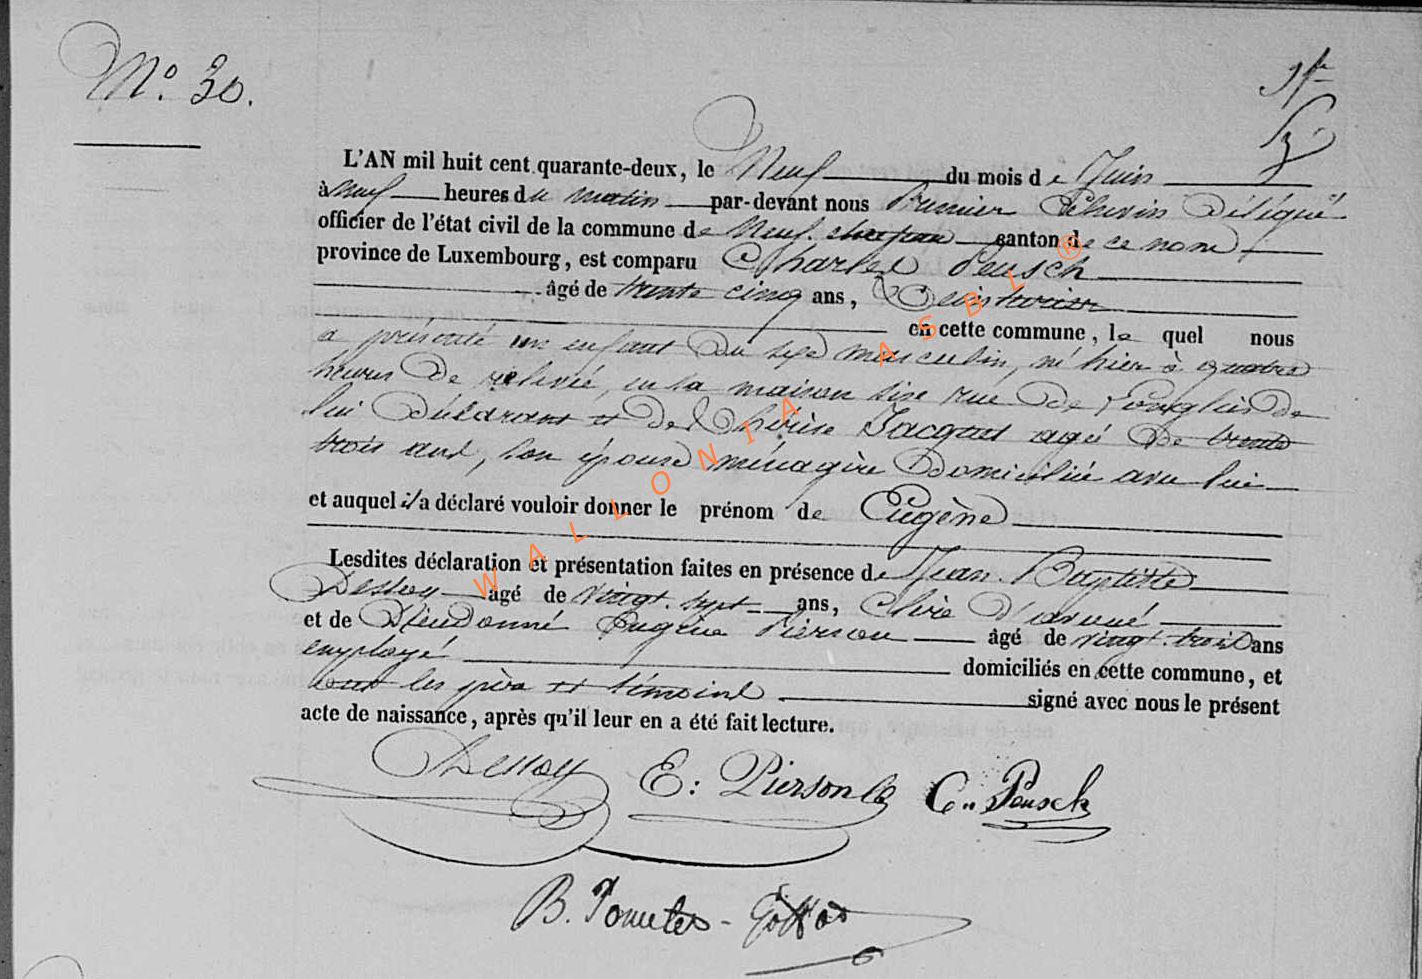 N.° 30.
L'AN mil huit cent quarante-deux, le Neuf du mois de Juin
à neuf heures du matin par-devant nous Premier Echevin Délégué
officier de l'état civil de la commune de Neufchateau canton de ce nom
province de Luxembourg, est comparu Charles Peusch
âgé de trente cinq ans,
en cette commune, le quel nous
a présenté un enfant du sexe masculin, né hier à quatre
heures de relevée, en sa maison sise rue de de
lui déclarant et de Thérèse Jacques agée de trente
trois ans, son épouse ménagère domiciliée avec lui
et auquel il a déclaré vouloir donner le prénom de Eugène
Lesdites déclaration et présentation faites en présence de Jean-Baptiste
Dessoy âgé de vingt-sept ans, Clerc d'avoué
et de Dieudonné Eugène Pierson âgé de vingt-trois ans
employé domiciliés en cette commune, et
ont les père et témoins signé avec nous le présent
acte de naissance, après qu'il leur en a été fait lecture.
Dessoy E: Pierson C. Peusch
B.
WALLONIA ASBL ®